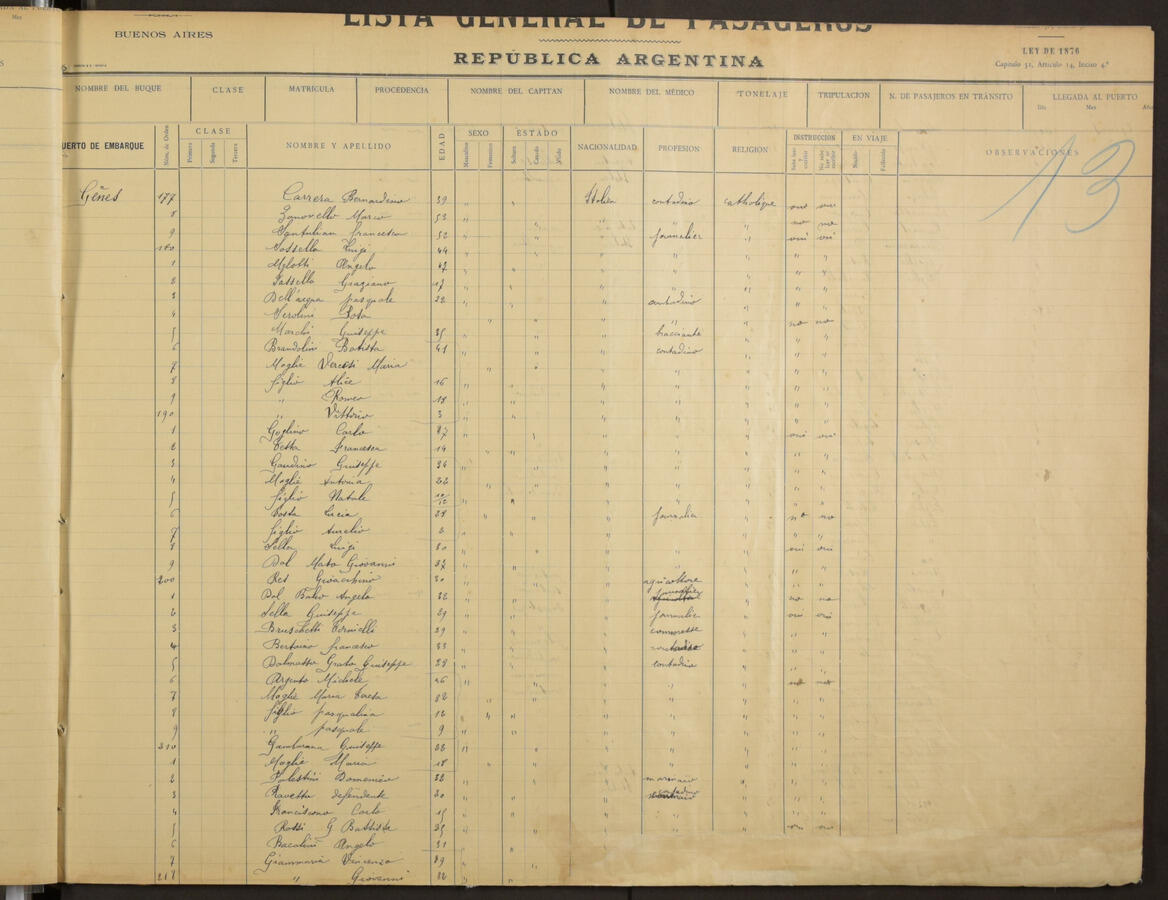 LISTA GENERAL DE PASAGEROS
BUENOS AIRES
REPÚBLICA ARGENTINA
LEY DE 1876
Capítulo 31, Artículo 14, Inciso 4.º
NOMBRE DEL BUQUE CLASE MATRÍCULA PROCEDENCIA NOMBRE DEL CAPITAN NOMBRE DEL MÉDICO TONELAJE TRIPULACION N. DE PASAJEROS EN TRÁNSITO LLEGADA AL PUERTO
Día Mes
PUERTO DE EMBARQUE Núm. de Orden CLASE Primera Segunda Tercera NOMBRE Y APELLIDO EDAD SEXO Masculino Femenino ESTADO Soltero Casado Viudo NACIONALIDAD PROFESION RELIGION INSTRUCCION EN VIAJE Nacido Fallecido OBSERVACIONES
13
Gênes 177 Carrera Bernardino 39 " Italien contadino catholique oui oui
8 Zanovello Marco 53 " " " " no no
9 Santulian francesco 52 " " journalier " oui oui
180 Tossella Luigi 44 " " " "
1 Melotti Angelo 47 " " " "
2 Tassello Graziano 17 " " " "
3 Dell'acqua pasquale 22 " " contadino "
4 Verolini Rosa " " " no no
5 Marchi Giuseppe 35 " " bracciante " " "
6 Brandolini Batista 41 " " contadino " " "
7 Moglie Vercesi Maria " " " " "
8 figlio Alice 16 " " " " " "
9 " Romeo 18 " " " " " "
190 " Vittorio 3 " " " " " "
1 Goglino Carlo 27 " " " " oui oui
2 Testa francesca 14 " " " " " "
3 Gaudino Giuseppe 34 " " " " " "
4 Moglie Antonia 22 " " " " " "
5 figlio Natale 10/12 " " " " " "
6 Costa Lucia 28 " " journalier " no no
7 figlio Aurelio 2 " " " " "
8 Sella Luigi 30 " " " " oui oui
9 Dal Mato Giovanni 37 " " " " " "
200 Res Gioacchino 30 " " agricoltore " " "
1 Dal Balio Angelo 32 " " journalier " no no
2 Sella Giuseppe 29 " " journalier " oui oui
3 Bruschetti Cornelli 29 " " " " "
4 Bertoino francesco 33 " " " " "
5 Dalmasso Grato Giuseppe 28 " " contadino "
6 Argento Michele 46 " " " " no no
7 Moglie Maria Teresa 32 " " " " " "
8 figlio pasqualina 12 " " " " " "
9 " pasquale 9 " " " " " "
210 Gambarana Giuseppe 28 " " " " " "
1 Moglie Maria 18 " " " " " "
2 Palestini Domenico 32 " " marinaio " " "
3 Ravetta defendente 20 " " contadino " " "
4 Franciscono Carlo 15 " " " " " "
5 Rossi G Battista 35 " " " " oui oui
6 Bacolini Angelo 31 "
7 Giammaria Vincenzo 29 "
218 " Giovanni 22 "